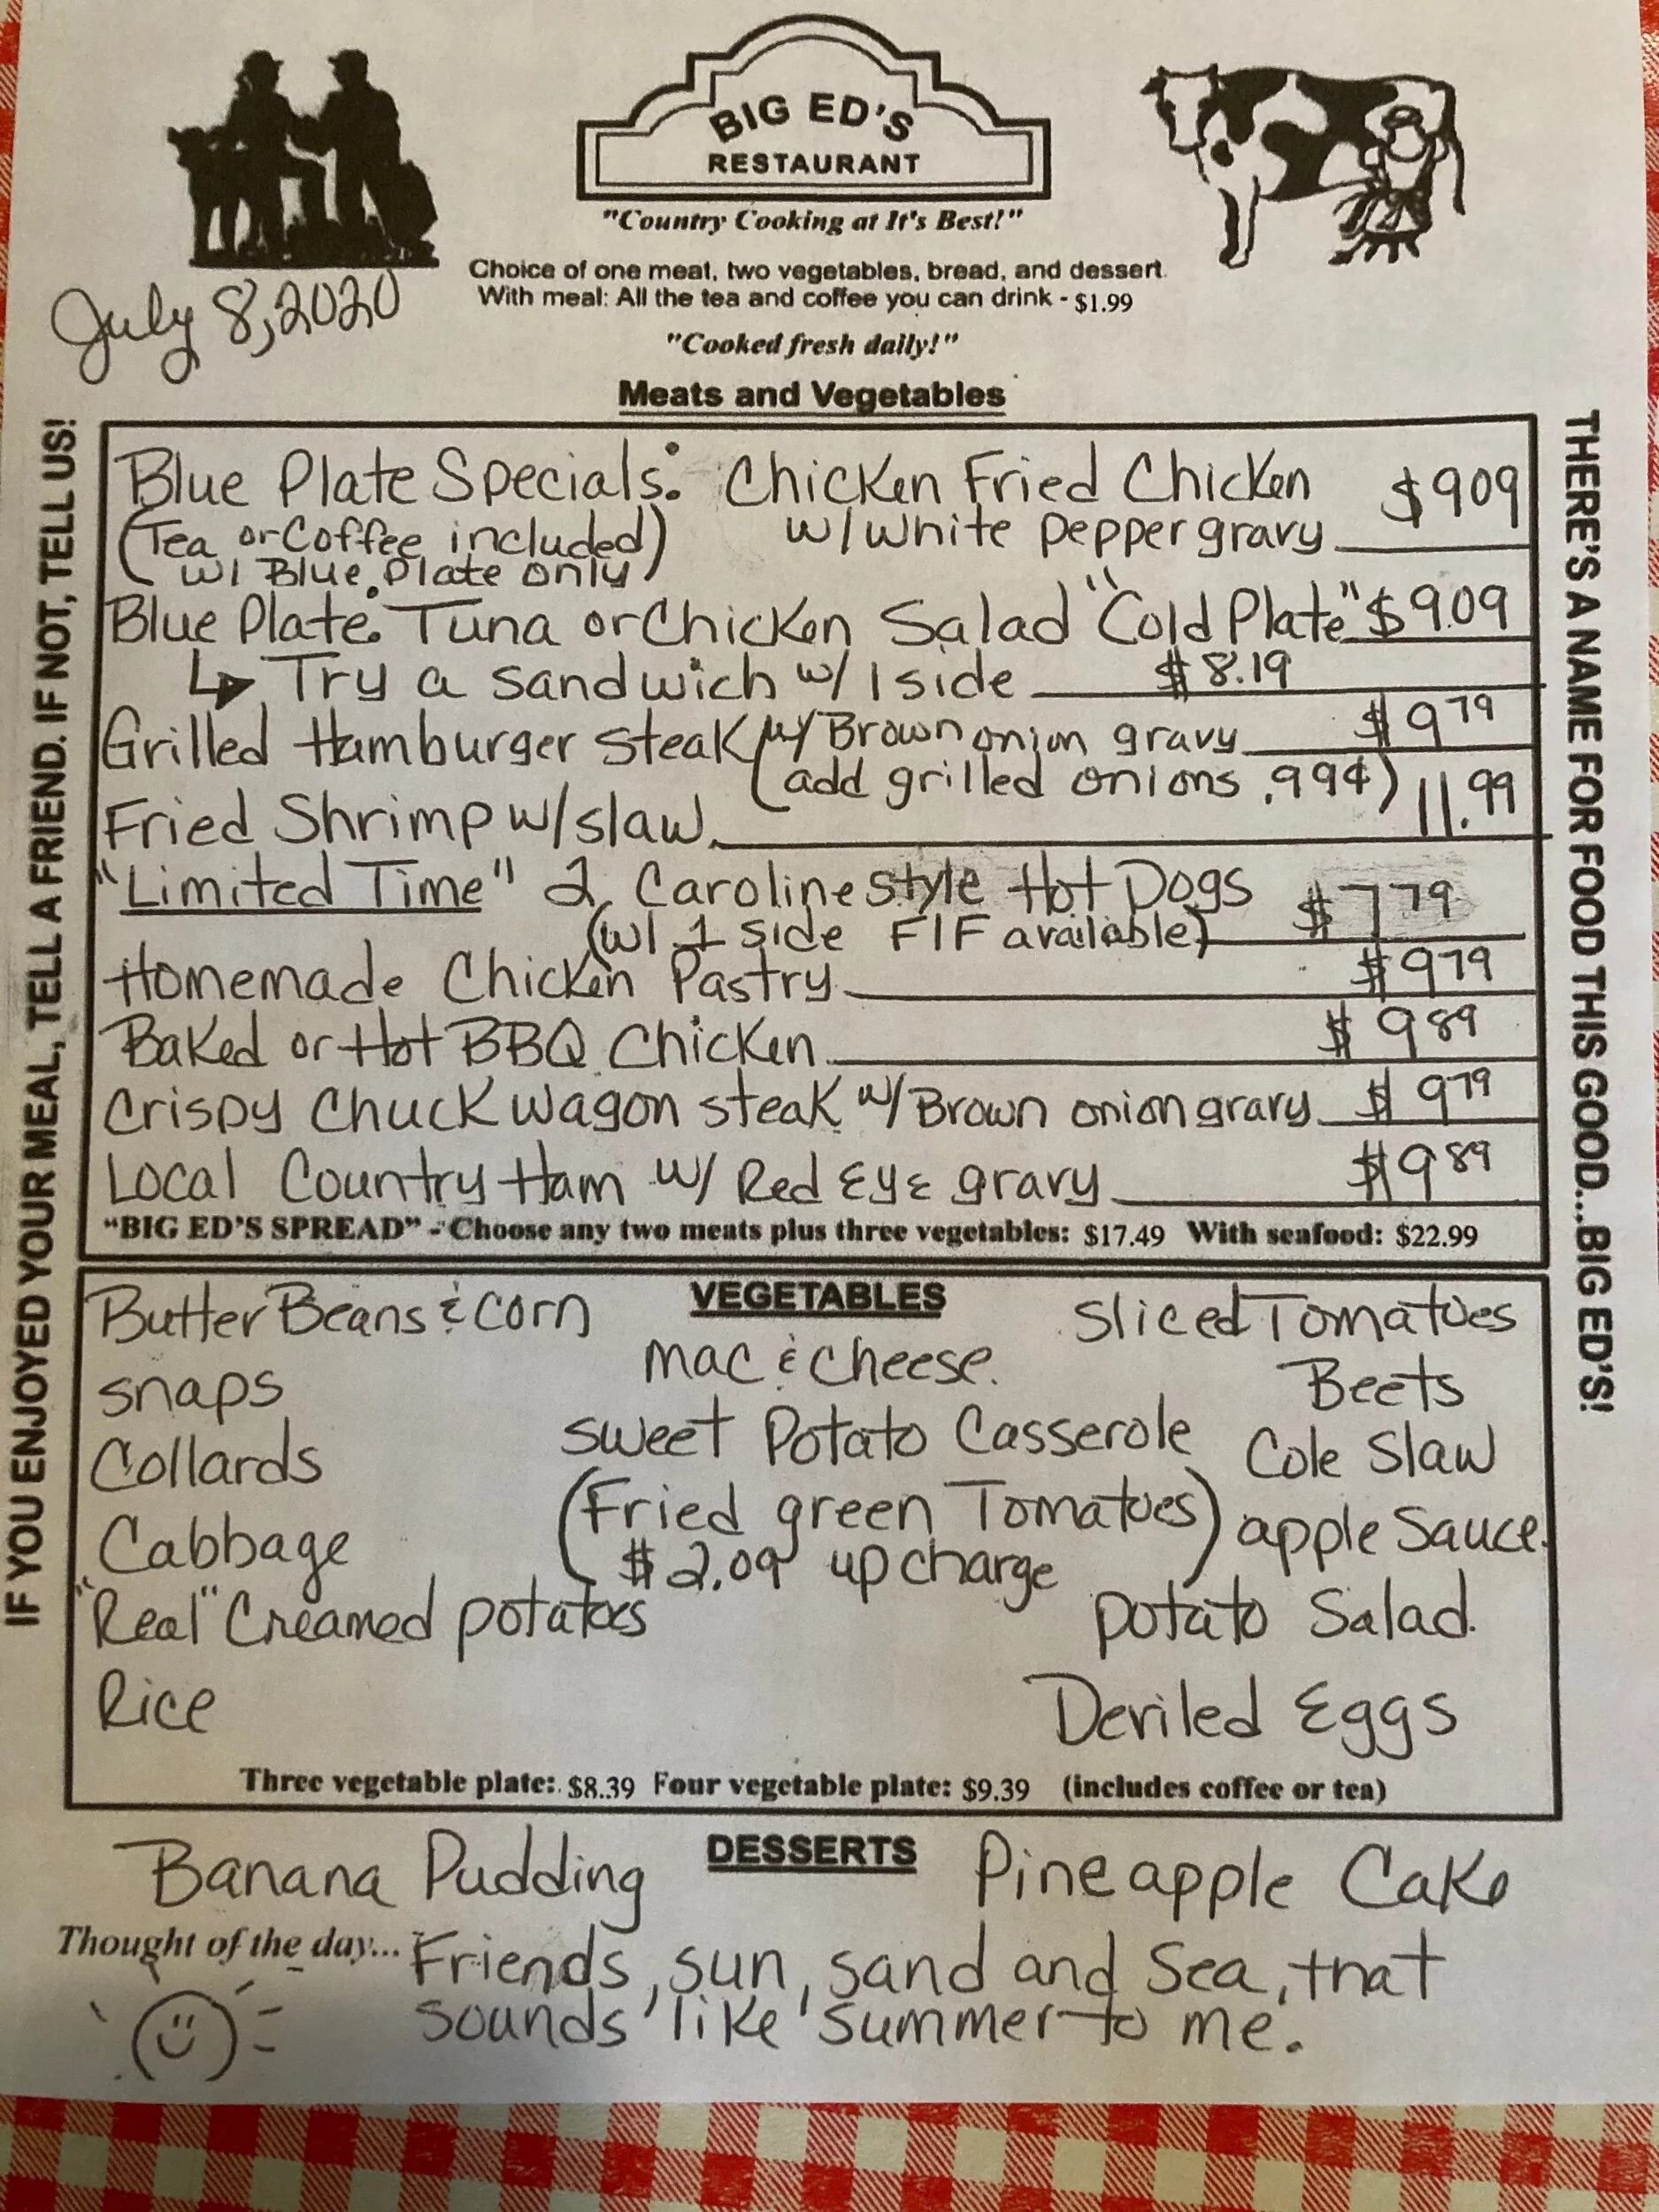 BIG ED'S
RESTAURANT
"Country Cooking at It's Best!"
Choice of one meat, two vegetables, bread, and dessert.
With meal: All the tea and coffee you can drink - $1.99
July 8, 2020
"Cooked fresh daily!"
Meats and Vegetables
IF YOU ENJOYED YOUR MEAL, TELL A FRIEND. IF NOT, TELL US!
THERE'S A NAME FOR FOOD THIS GOOD...BIG ED'S!
Blue Plate Specials: Chicken Fried Chicken $9 09
(Tea or Coffee included) w/ white pepper gravy
w/ Blue Plate only
Blue Plate: Tuna or Chicken Salad "Cold Plate" $9.09
↳ Try a sandwich w/ 1 side $8.19
Grilled Hamburger steak w/ Brown onion gravy $9 79
(add grilled onions .99¢)
Fried Shrimp w/ slaw 11.99
"Limited Time" 2 Caroline style Hot Dogs $7 79
(w/ 1 side FIF available)
Homemade Chicken Pastry $9 79
Baked or Hot BBQ Chicken $9 89
Crispy Chuck wagon steak w/ Brown onion gravy $9 79
Local Country Ham w/ Red Eye gravy $9 89
"BIG ED'S SPREAD" - Choose any two meats plus three vegetables: $17.49 With seafood: $22.99
VEGETABLES
Butter Beans & corn
snaps
Collards
Cabbage
"Real" Creamed potatoes
Rice
mac & cheese.
sweet Potato Casserole
(Fried green Tomatoes)
$2.09 up charge
Sliced Tomatoes
Beets
Cole Slaw
apple Sauce.
potato Salad.
Deviled Eggs
Three vegetable plate: $8.39 Four vegetable plate: $9.39 (includes coffee or tea)
DESSERTS
Banana Pudding Pineapple Cake
Thought of the day... Friends, sun, sand and Sea, that
sounds like summer to me.